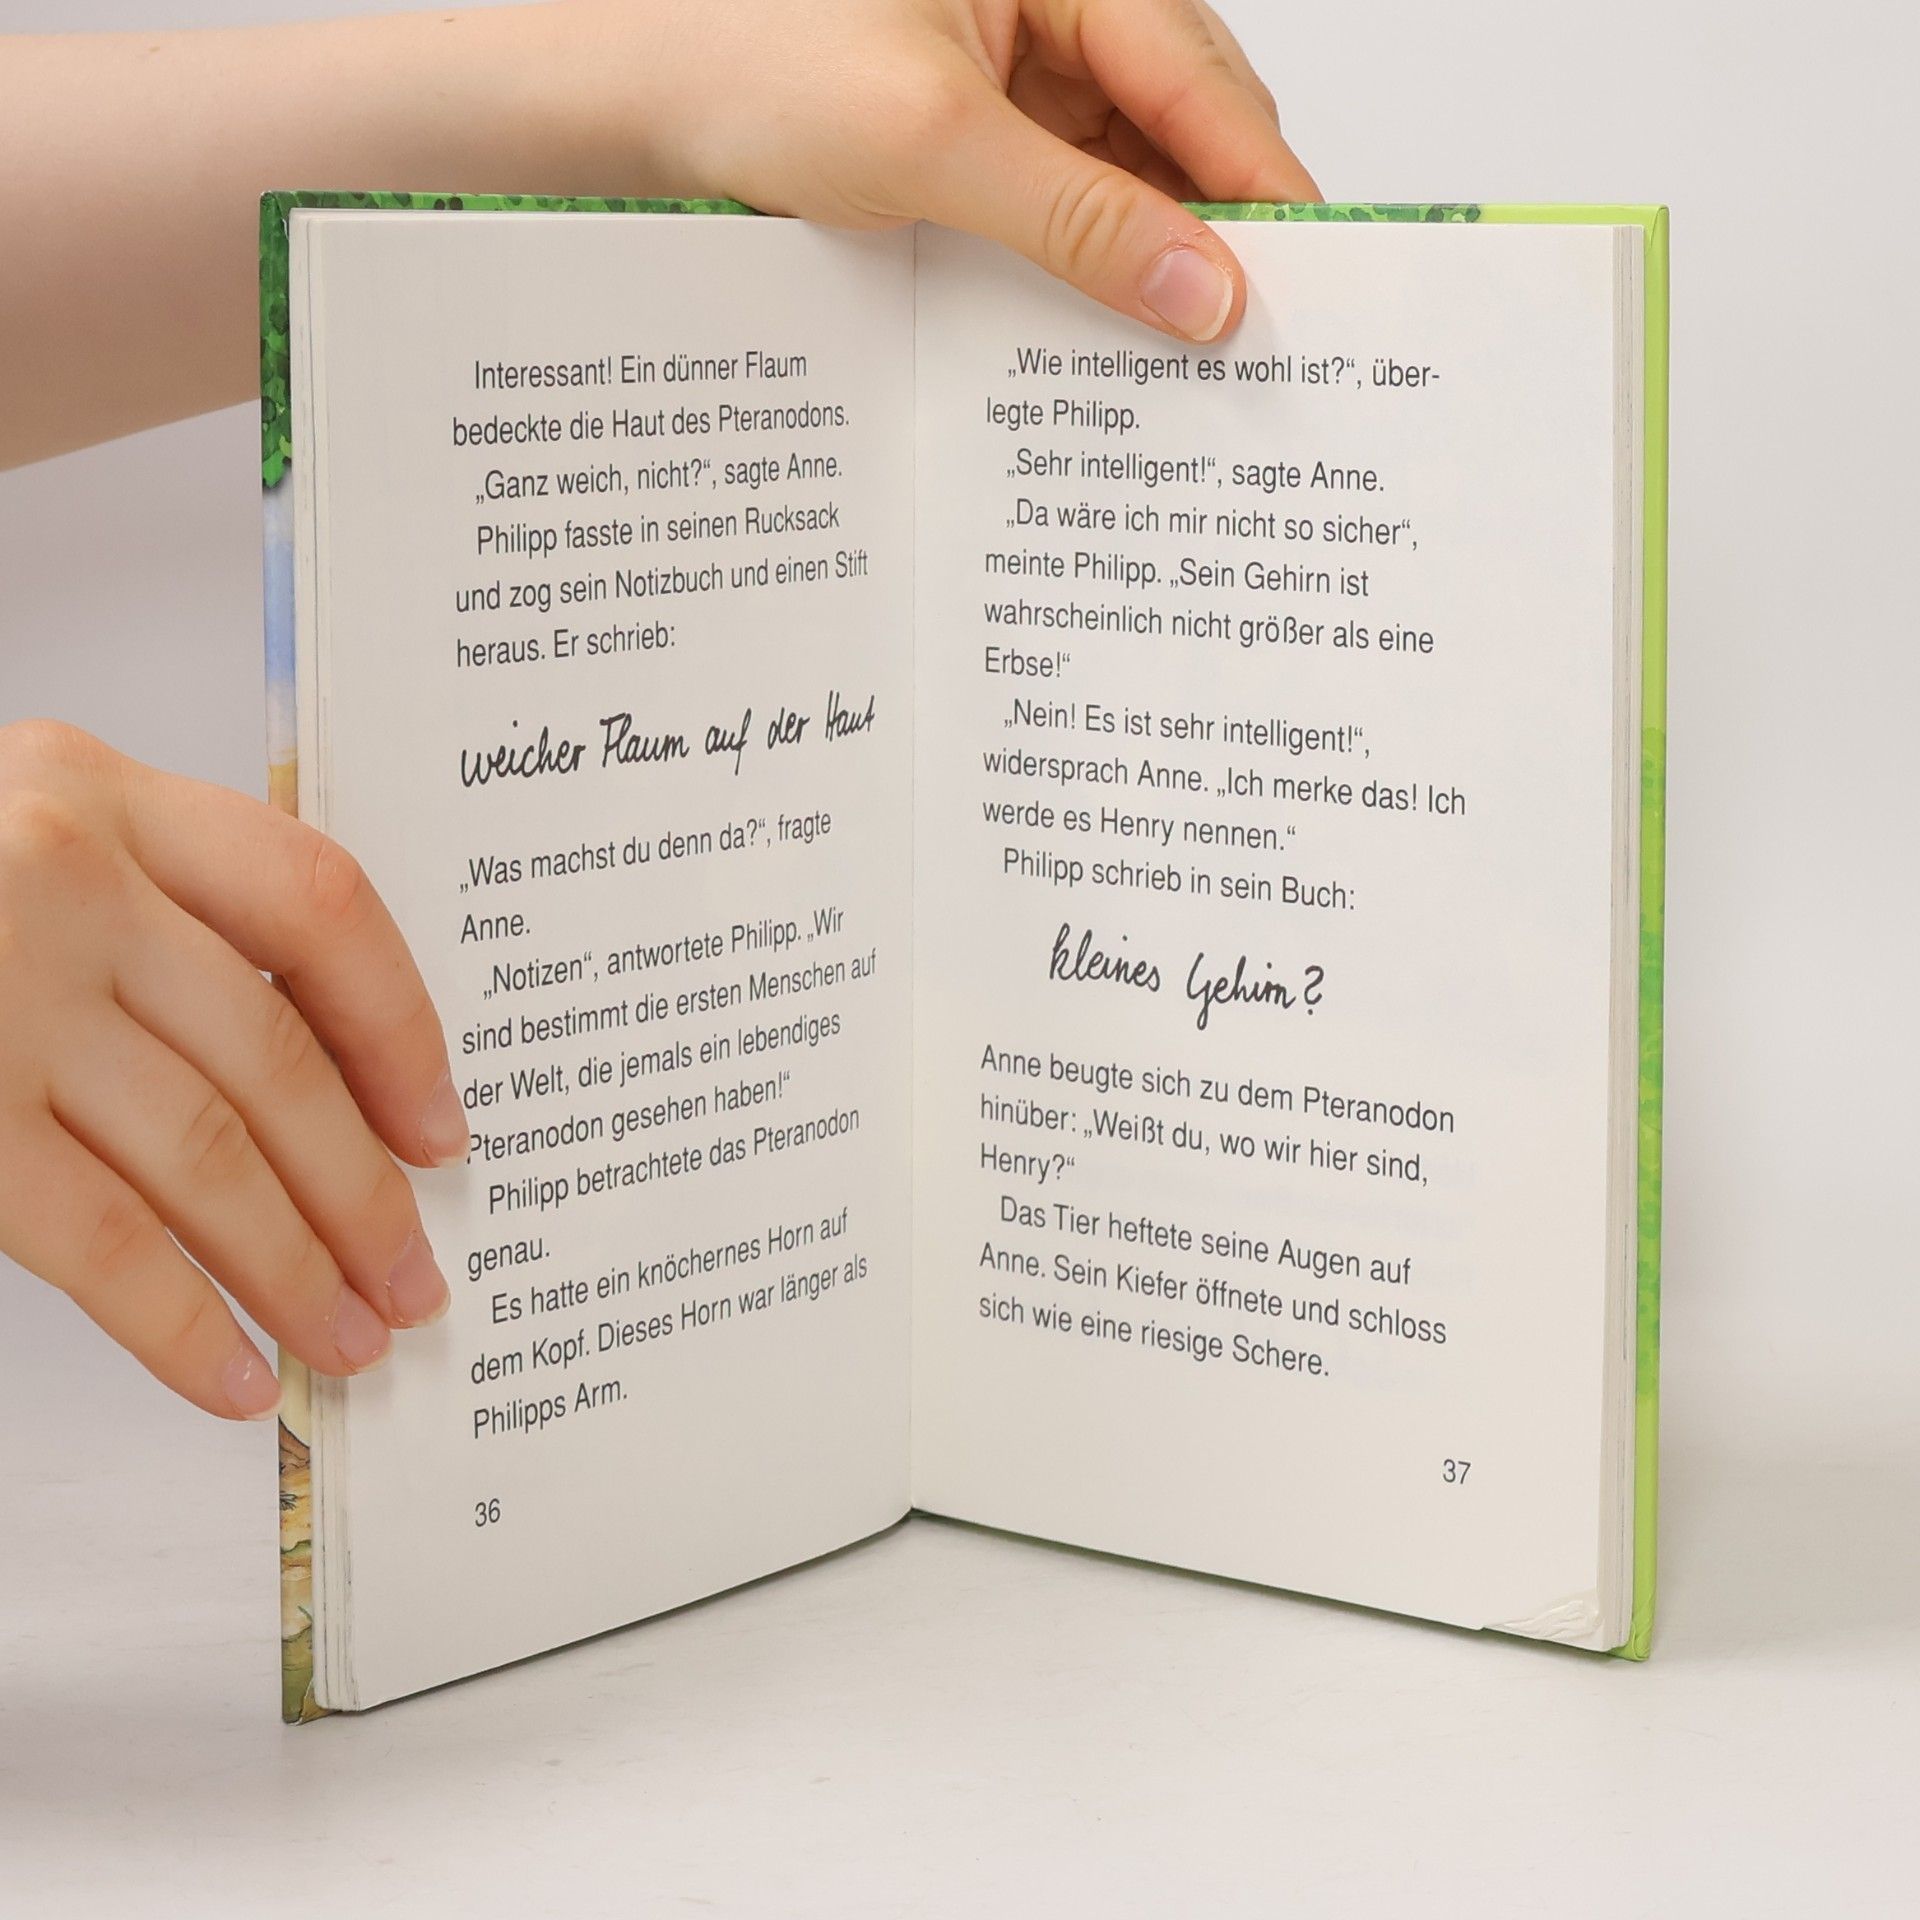 Interessant! Ein dünner Flaum
bedeckte die Haut des Pteranodons.
„Ganz weich, nicht?“, sagte Anne.
Philipp fasste in seinen Rucksack
und zog sein Notizbuch und einen Stift
heraus. Er schrieb:
weicher Flaum auf der Haut
„Was machst du denn da?“, fragte
Anne.
„Notizen“, antwortete Philipp. „Wir
sind bestimmt die ersten Menschen auf
der Welt, die jemals ein lebendiges
Pteranodon gesehen haben!“
Philipp betrachtete das Pteranodon
genau.
Es hatte ein knöchernes Horn auf
dem Kopf. Dieses Horn war länger als
Philipps Arm.
36
„Wie intelligent es wohl ist?“, über-
legte Philipp.
„Sehr intelligent!“, sagte Anne.
„Da wäre ich mir nicht so sicher“,
meinte Philipp. „Sein Gehirn ist
wahrscheinlich nicht größer als eine
Erbse!“
„Nein! Es ist sehr intelligent!“,
widersprach Anne. „Ich merke das! Ich
werde es Henry nennen.“
Philipp schrieb in sein Buch:
kleines Gehirn?
Anne beugte sich zu dem Pteranodon
hinüber: „Weißt du, wo wir hier sind,
Henry?“
Das Tier heftete seine Augen auf
Anne. Sein Kiefer öffnete und schloss
sich wie eine riesige Schere.
37